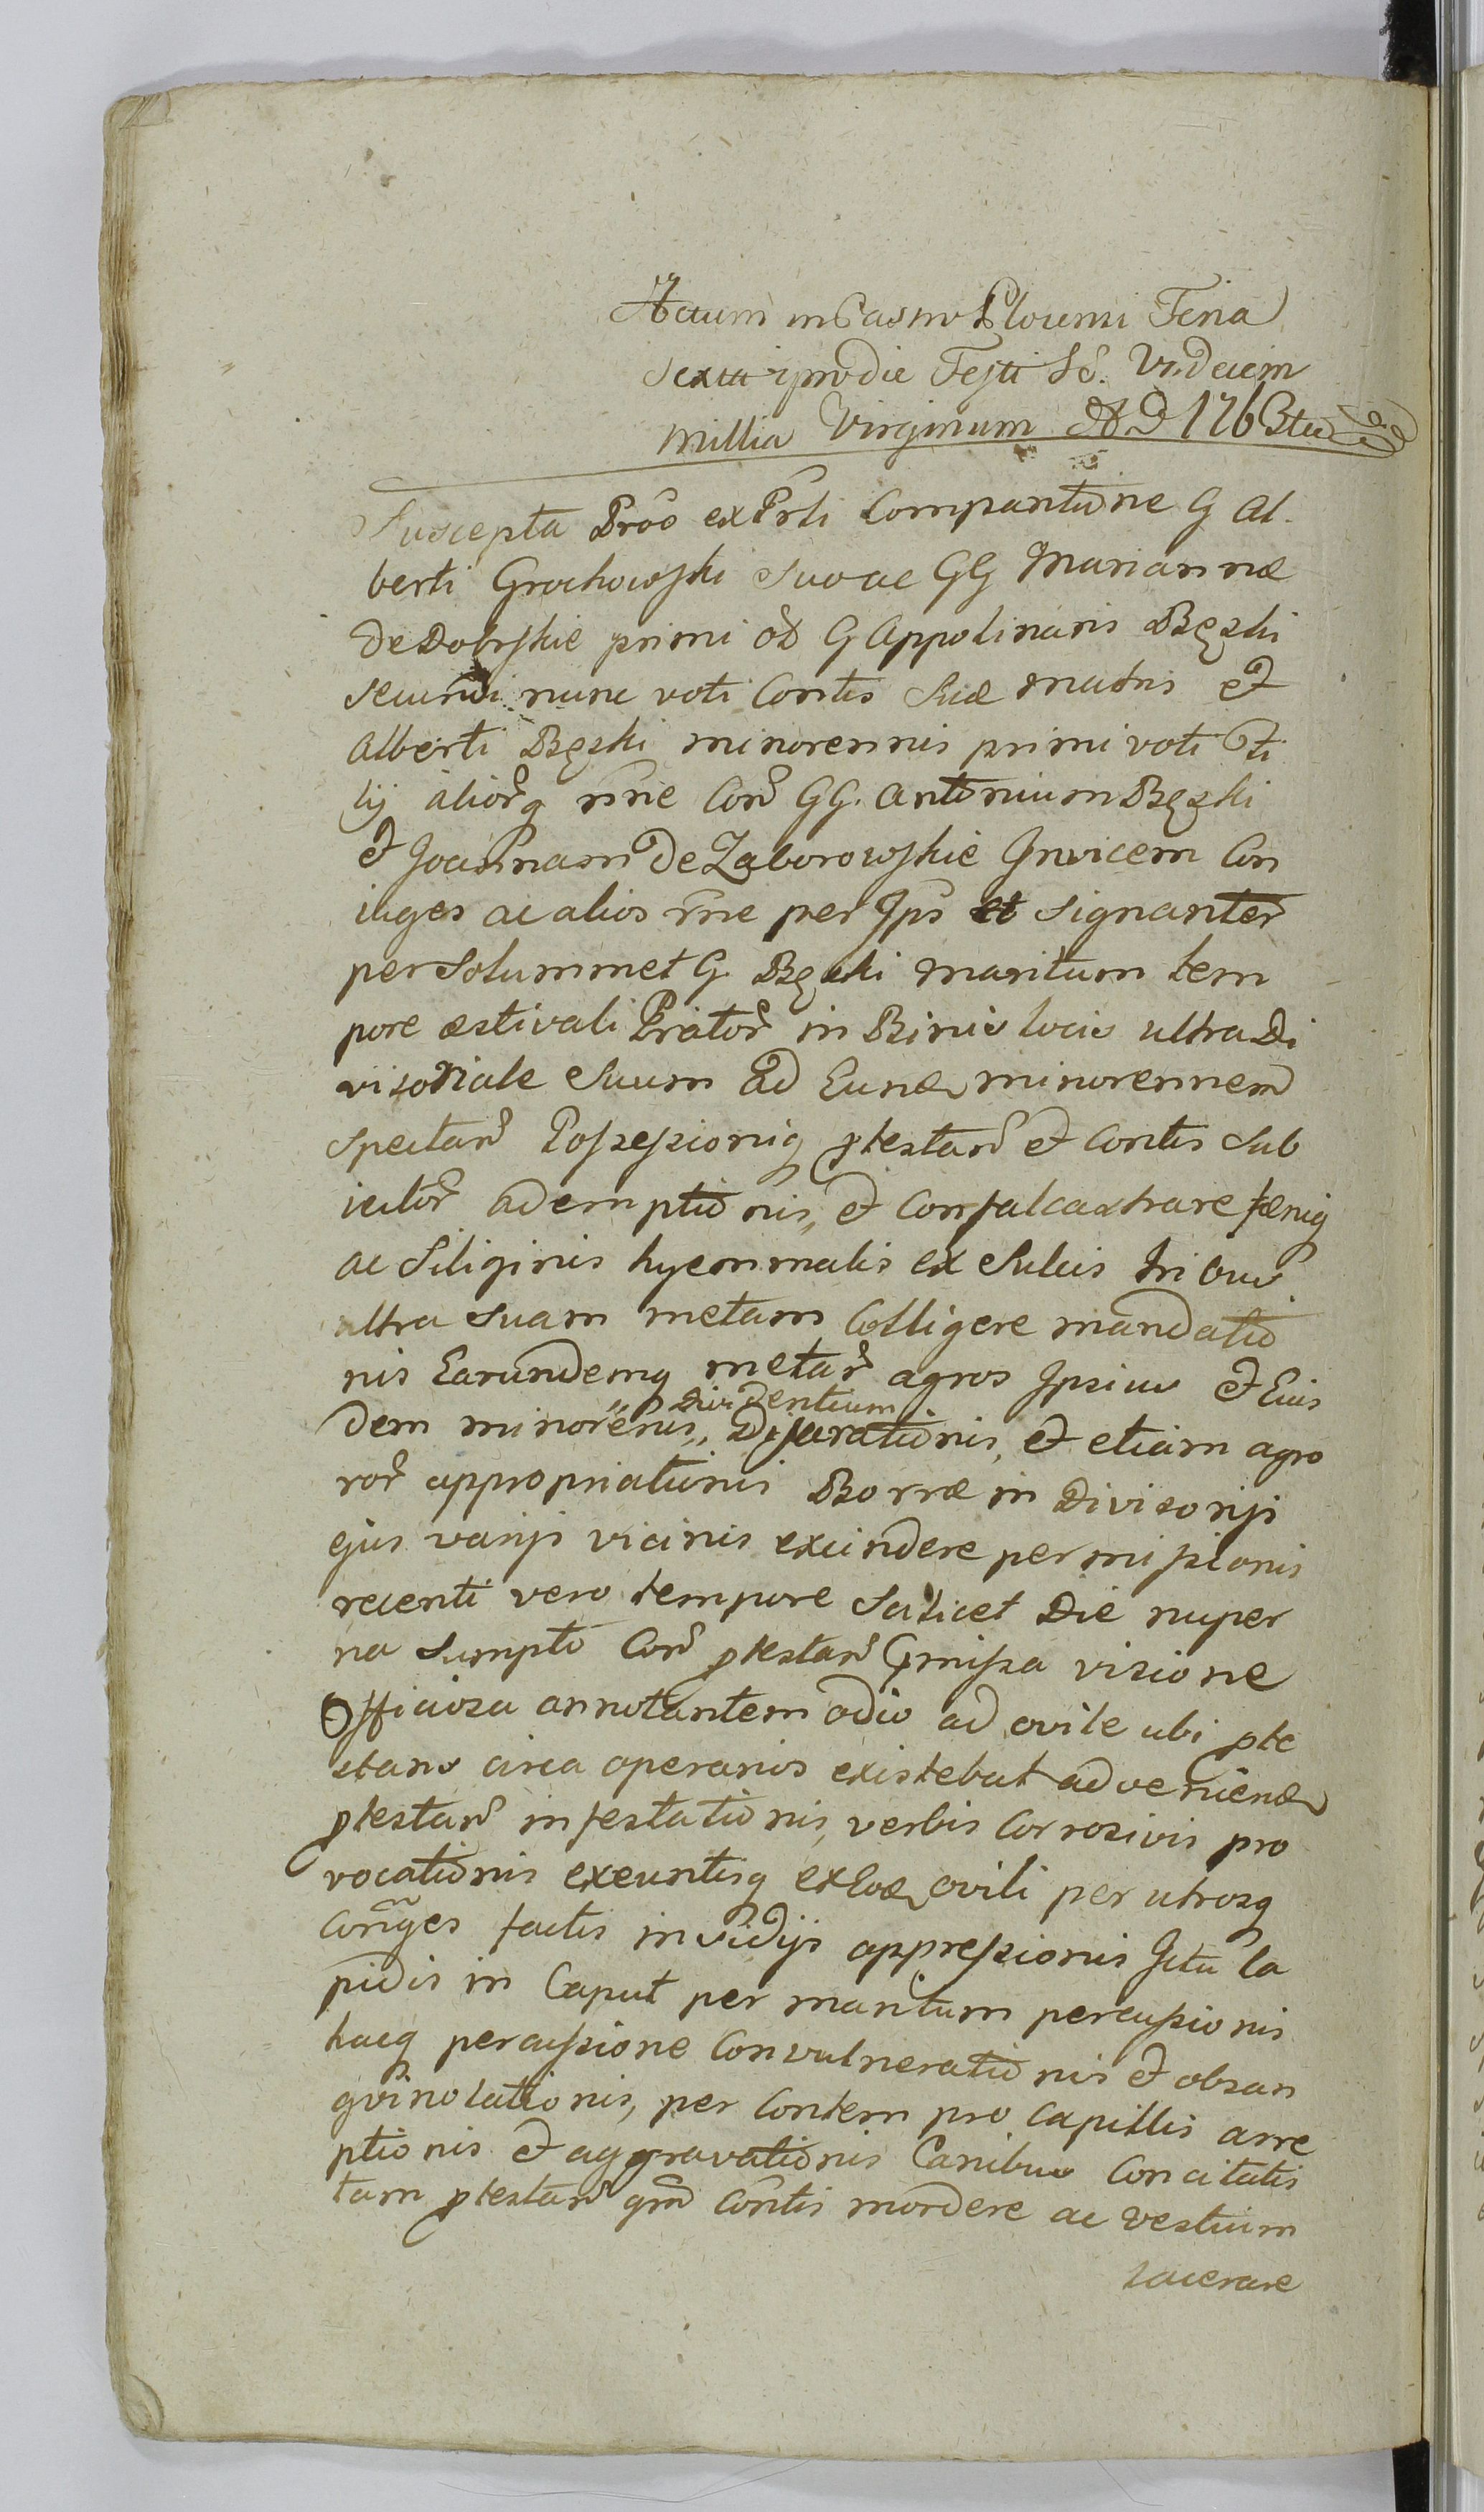 Actum in Castro Plocensi Feria
Sexta ipso die Festi SS. Undecim
millia Virginum A D 1763tio
Suscepta Prõõ ex Prti Compartiõne G Al-
berti Grochowski suo ac GG Mariannæ
de Dobrskie primi õł G Appolinaris Bęski
secundi nunc voti Contis Suæ matris et
Alberti Bęski minorennis primi voti Fi
lij aliorq nrñe Corã GG. Antonium Bęski
et Joannam de Zaborowskie Invicem Con
iuges ac alios rñe per Ips et signanter
per Solummet G. Bęski maritum tem
pore æstivali Prator in Binis locis ultra Di
visoriale Suum ad Eund minorennem
spectan Possessioniq ptestan et Contis Sub
iector ademptiõnis, et Confalcastrare fæniq
ac Siliginis hyemmalis ex Sulcis tribus
ultra Suam metam Colligere mandatiõ
nis Earundemq metar agros Ipsius et Eius
dividentium
dem minorenis, Disaratiõnis, et etiam agro
ror appropriatiõnis Borræ in Divisorijs
ejus varijs vicinis excindere permissionis
recenti vero tempore Scilicet Die nuper
na Sumpto Corã ptestan pmissa visione
Officiosa annotantem odio ad ovile ubi pte
stans circa operarios existebat adveniend
ptestan infestatiõnis, verbis Corrosivis pro
vocatiõnis exeuntisq ex Eod ovili per utrosq
Conges factis invidijs oppressionis Ictu la
pidis in Caput per maritum percussionis
hacq percussione Convulneratiõnis et obsan
gvinolationis, per Contem pro Capillis arre
ptionis et aggravatiõnis Canibus Concitatis
tam ptestan qm Contis mordere ac vestium
lacerare